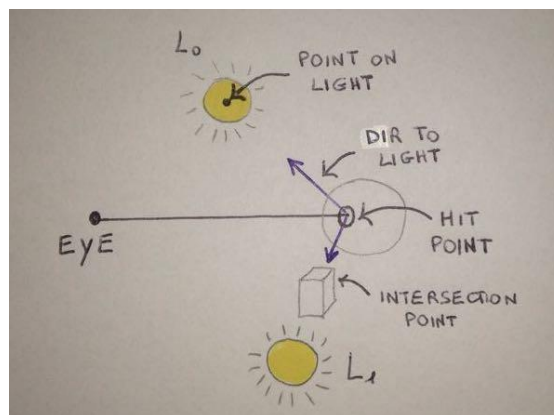 L₀
POINT ON
LIGHT
DIR TO
LIGHT
EYE
HIT
POINT
INTERSECTION
POINT
L₁